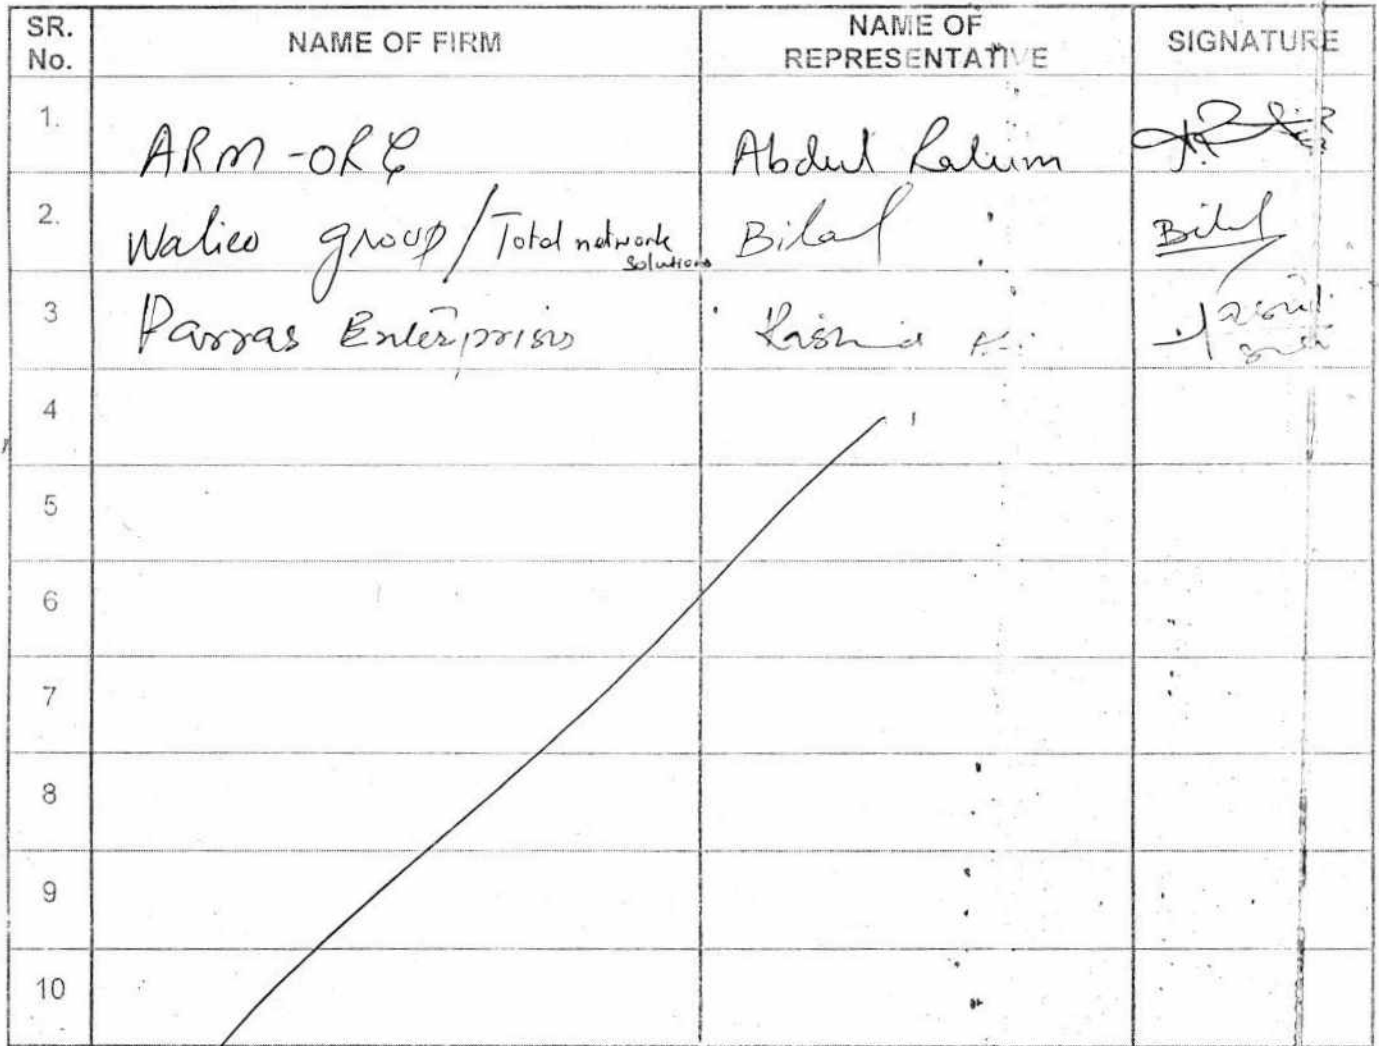 SR. No.
NAME OF FIRM
NAME OF REPRESENTATIVE
SIGNATURE
1. ARM-ORG Abdul Rahim
2. Walieo group/Total network solutions Bilal Bilal
3 Parras Enterprises
4
5
6
7
8
9
10